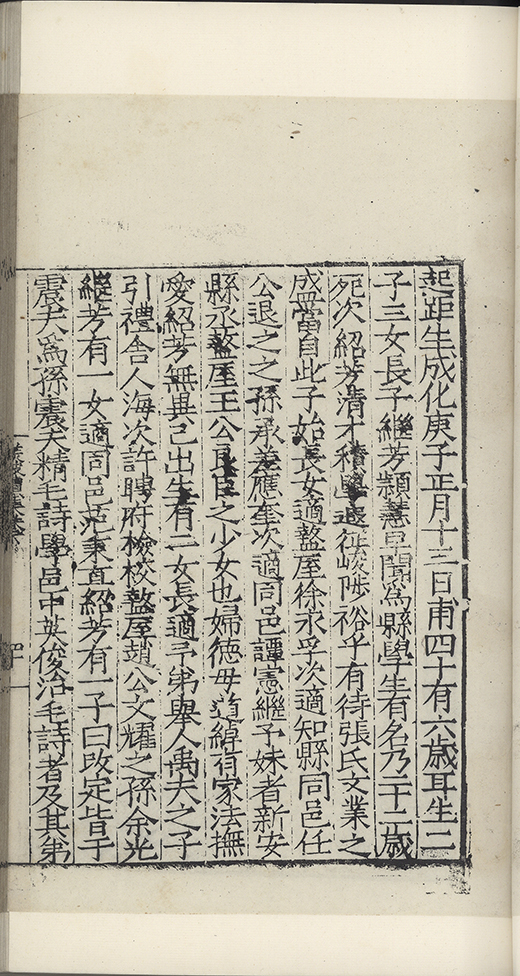 起距生成化庚子正月十三日甫四十有六歲耳生二
子三女長子繼芳穎慧早聞為縣學生有名乃二十二歲
死次紹芳清才積學退征峻陟裕乎有待張氏文業之
盛當自此子始長女適盩厔徐永孚次適知縣同邑任
公退之之孫承差應奎次適同邑譚憲繼予妹者新安
縣丞盩厔王公良臣之少女也婦德母道綽有家法撫
愛紹芳無異己出生有二女長適予弟舉人禹夫之子
引禮舍人海次許聘府檢校盩厔趙公文耀之孫余光
繼芳有一女適同邑范秉直紹芳有一子曰改定皆于
震夫為孫震夫精毛詩學邑中英俊治毛詩者及其弟